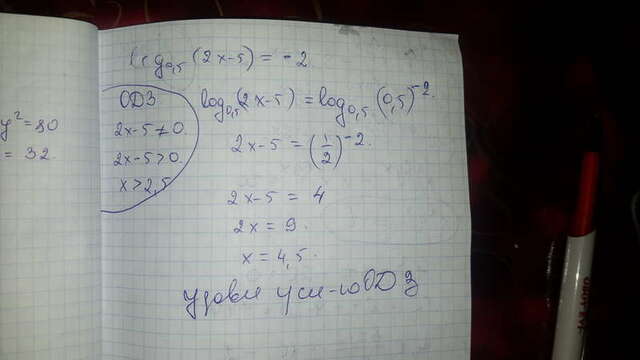 y²=80
= 32.
log₀,₅(2x-5) = -2.
ОДЗ
2x-5≠0.
2x-5>0
x>2,5
log₀,₅(2x-5) = log₀,₅(0,5)⁻².
2x-5 = (1/2)⁻².
2x-5 = 4
2x = 9.
x = 4,5.
удовл усл-ю ОДЗ